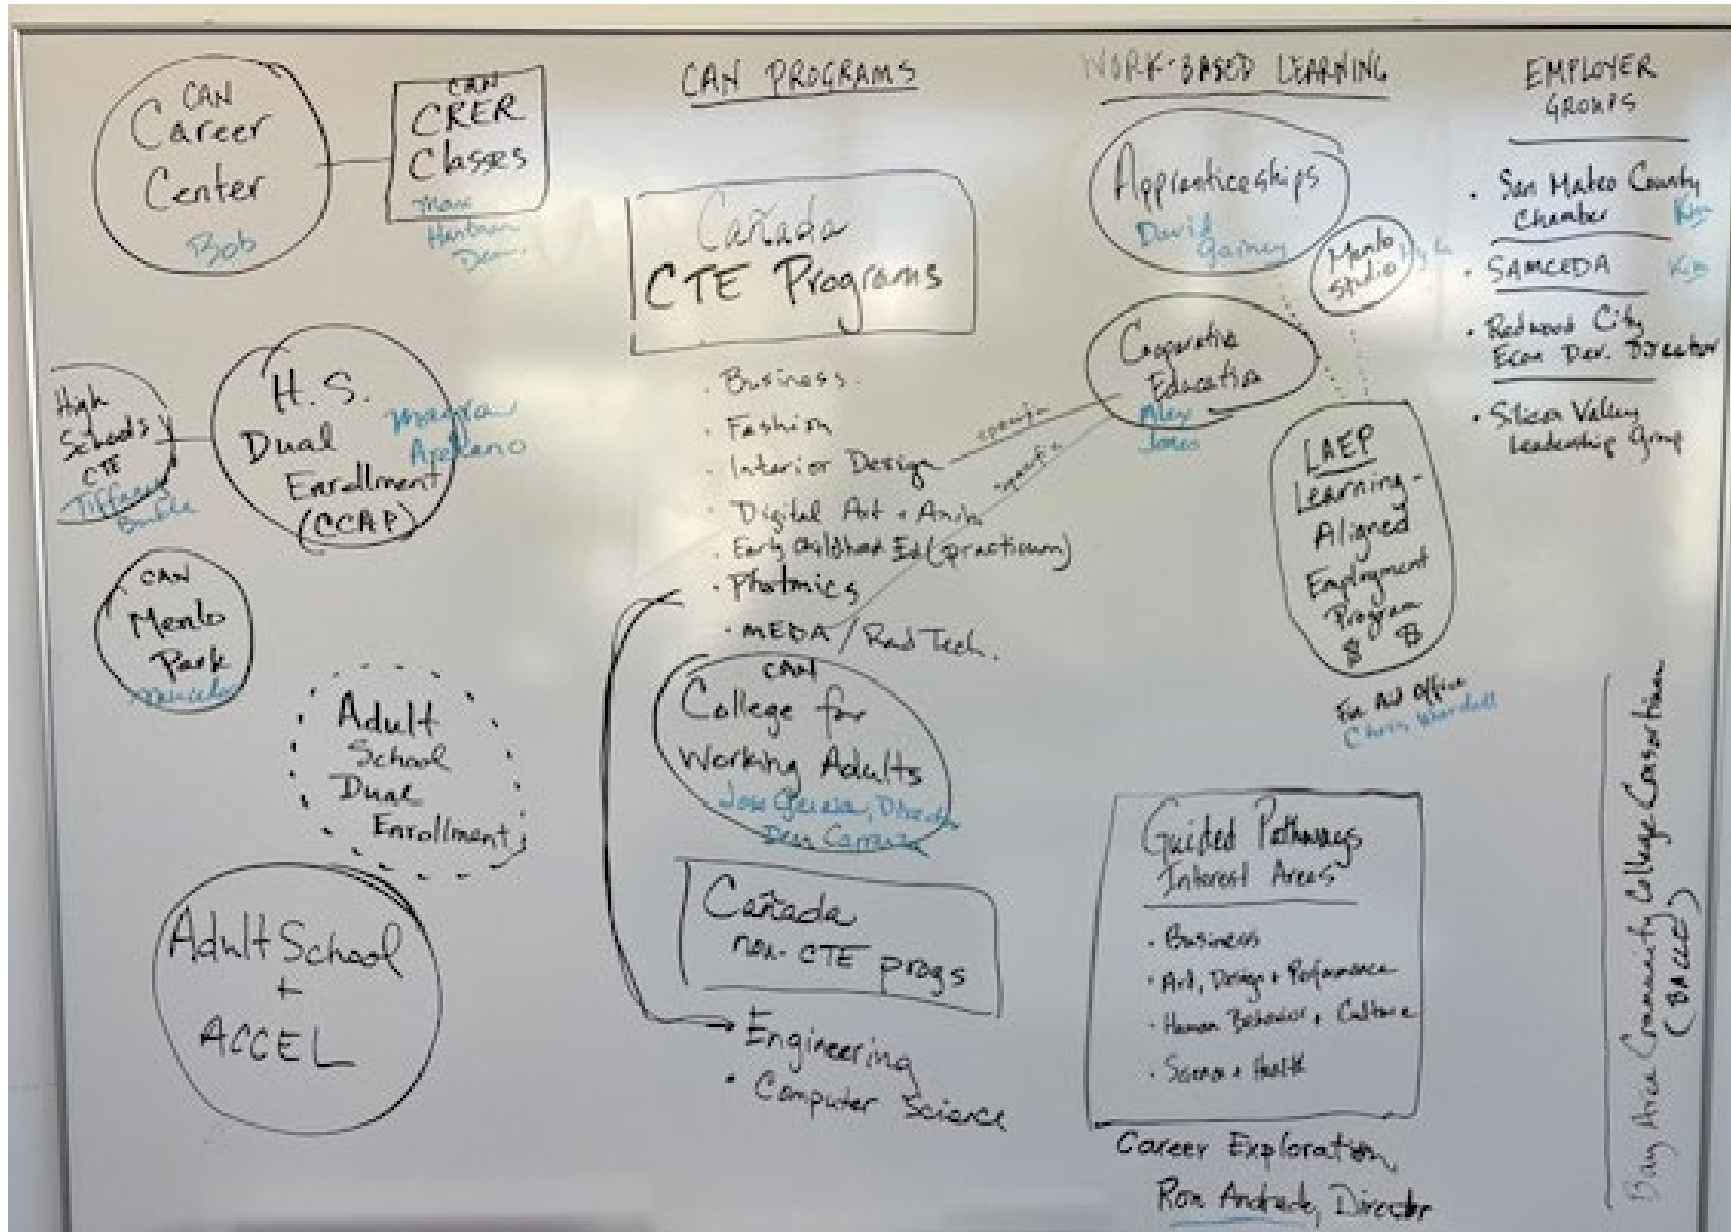 CAN
Career
Center
Bob
CAN
CRER
Classes
Hartman
Dean
High
Schools
CTE
Tiffany
H.S.
Dual
Enrollment
(CCAP)
Arellano
CAN
Menlo
Park
Adult
School
Dual
Enrollment
Adult School
+
ACCEL
CAN PROGRAMS
Cañada
CTE Programs
· Business
· Fashion
· Interior Design
· Digital Art + Anim
· Early Childhood Ed (practicum)
· Photonics
· MEDA / Rad Tech.
CAN
College for
Working Adults
Director
Dean Carranza
Cañada
non-CTE progs
Engineering
· Computer Science
WORK-BASED LEARNING
Apprenticeships
David
Menlo
Studio
Cooperative
Education
Alex
Jones
LAEP
Learning-
Aligned
Employment
Program
$ $
Fin Aid Office
Chris
Guided Pathways
Interest Areas
· Business
· Art, Design + Performance
· Human Behavior + Culture
· Science + Health
Career Exploration,
Ron Andrade, Director
EMPLOYER
GROUPS
· San Mateo County
Chamber Kim
· SAMCEDA Kim
· Redwood City
Econ Dev. Director
· Silicon Valley
Leadership Group
Bay Area Community College Consortium
(BACCC)